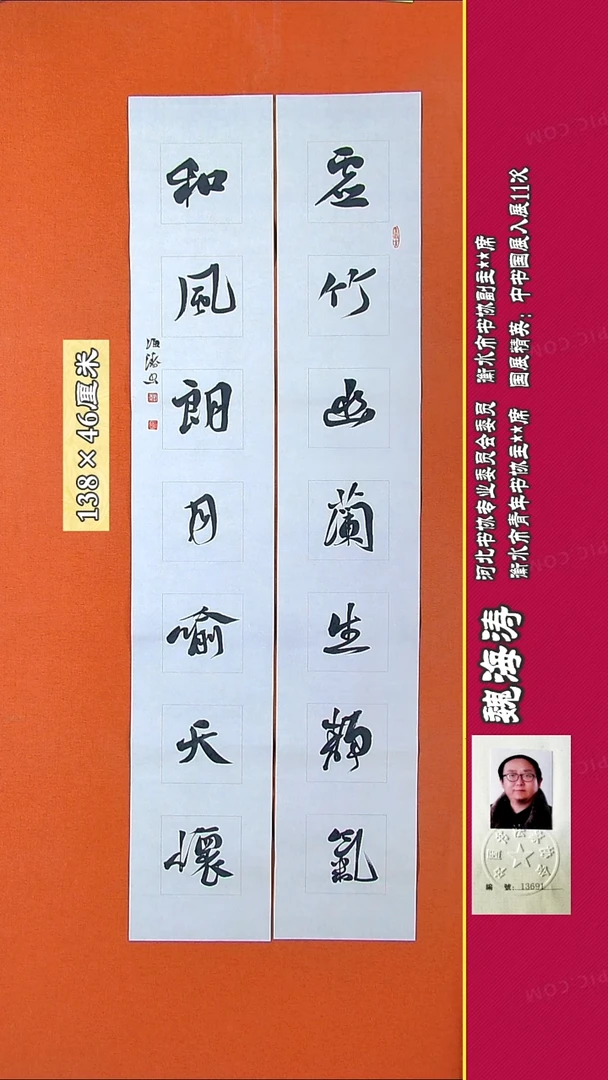 虚竹幽兰生静气
和風朗月喻天懷
海涛书
138×46厘米
魏海涛
河北书协专业委员会委员 衡水市书协副主**席
衡水市青年书协主**席 国展精英：中书国展入展11次
编 號：13691